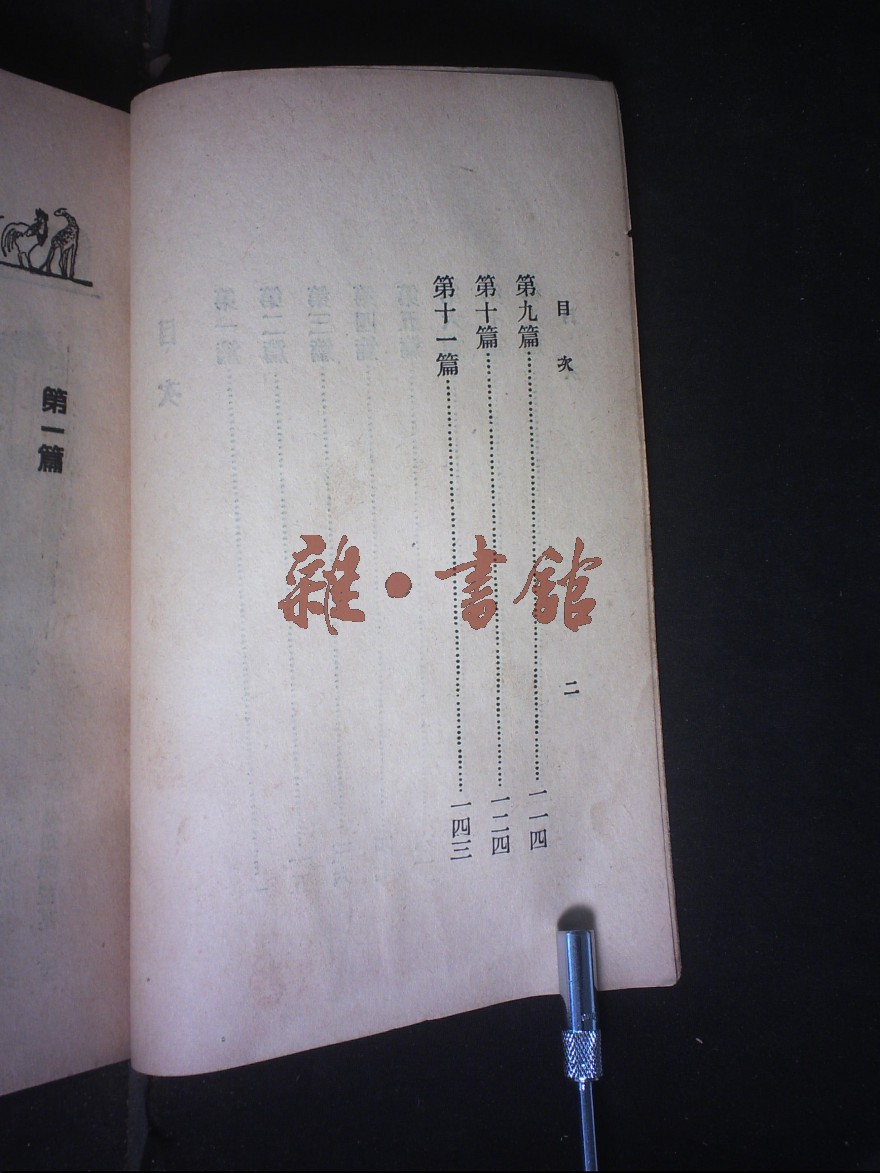 目次
二
第九篇……一一四
第十篇……一二四
第十一篇……一四三
第一篇
雜·書館